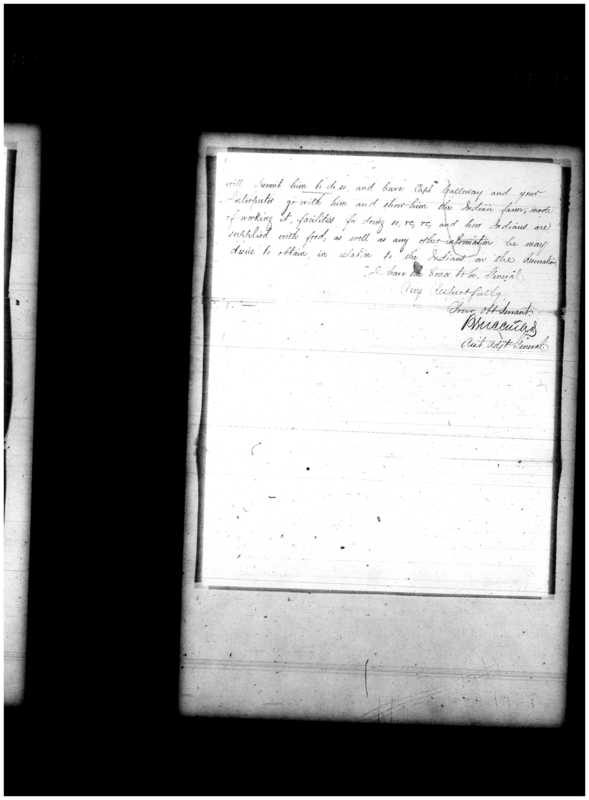 will permit him to do so and have Capt Calloway and your
Interpreter go with him and show him the Indian farm, mode
of working it, facilities for doing so, &c, &c, and how Indians are
supplied with food, as well as any other information he may
desire to obtain, in relation to the Indians on the reservation
I have the honor to be, General
Very Respectfully
Your Obt Servant
Asst Adjt General